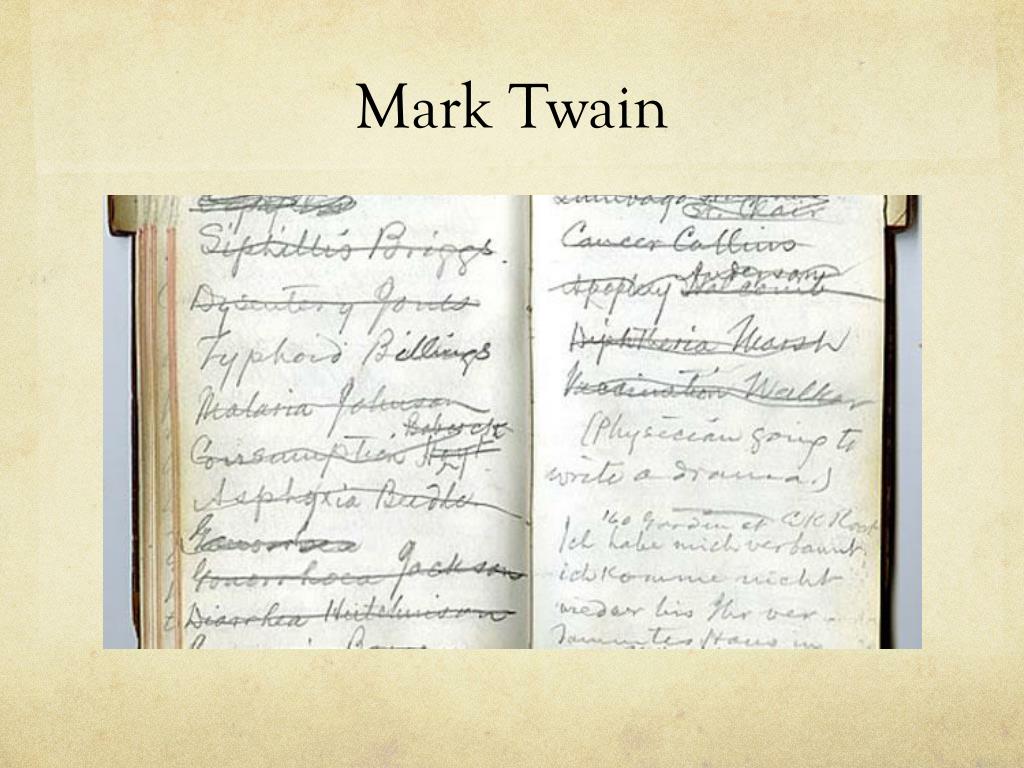 Mark Twain
Siphillis Briggs.
Dysentery Jones
Typhoid Billings
Malaria Johnson
Babcock
Consumption Hoyt
Asphyxia Beedle
Gonorrhoea Jackson
Diarrhea Hutchinson
Lumbago
St. Clair
Cancer Collins
Anderson
Apoplexy Holcomb
Diphtheria Marsh
Vaccination Walker
(Physician going to
write a drama.)
Garden at
Ich habe mich verbannt,
ich komme nicht
wieder bis Ihr ver
dammtes Haus in